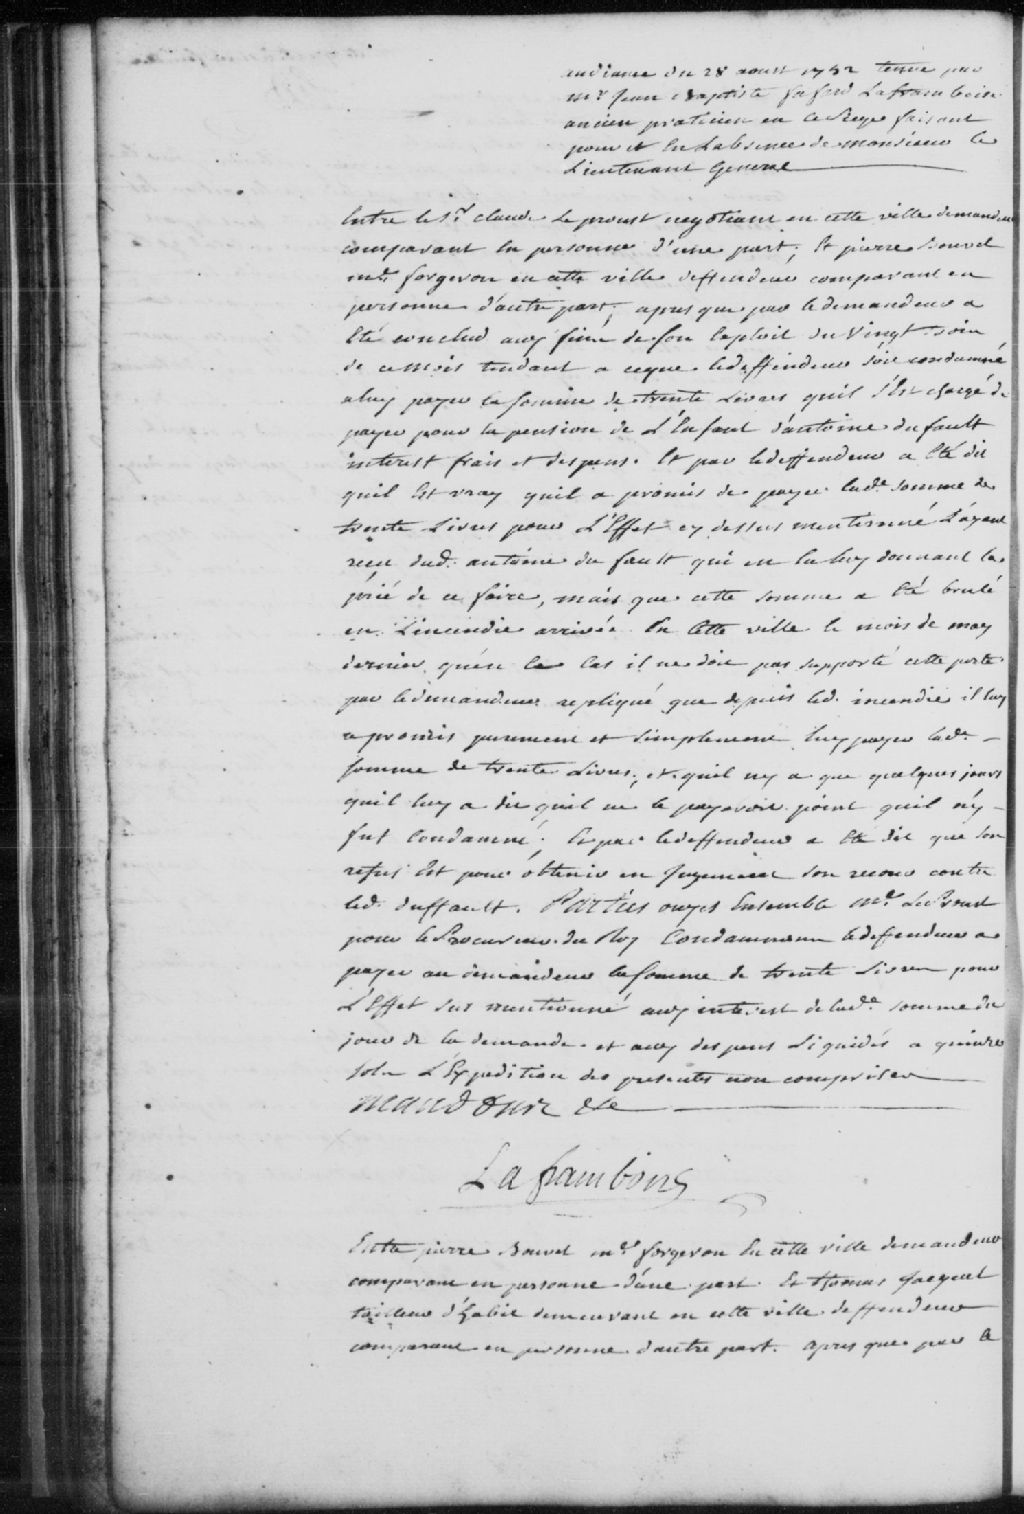 audiance du 28 aoust 1752 tenue par
mr. Jean Baptiste fafard Laframboise
ancien praticien en ce Siege faisant
pour et En Labsence de monsieur le
Lieutenant General
Entre le Sr. claude Le proust negotiant en cette ville demandeur
comparant en personne d'une part, Et pierre Bouvet
md. forgeron en cette ville deffendeur comparant en
personne d'autre part, apres que par le demandeur a
Eté conclud aux fins de son Exploit du Vingt
de ce mois tendant a ceque ledeffendeur soit condamné
a luy payer la somme de trente Livres quil s'Est chargé de
payer pour la pension de L'Enfant d'antoine dufault
interest frais et despens. Et par ledeffendeur a Eté dit
quil Est vray quil a promis de payer lade. somme de
trente Livres pour L'Effet cy dessus mentionné L'ayant
receu dud. antoine du fault qui en la luy donnant la
prié de ce faire, mais que cette somme a Eté brulé
en Lincendie arrivée En Cette ville le mois de may
dernier, quén ce Cas il ne doit pas supporté cette perte
par ledemandeur repliqué que depuis led. incendie il luy
a promis purement et simplement luy payer lade.
somme de trente Livres, et quil ny a que quelques jours
quil luy a dit quil ne le payeroit point quil n'y
fut Condamné; Et par ledeffendeur a Eté dit que son
refus Est pour obtenir un Jugement son recour contre
led. duffault. Parties ouyes Ensemble mr. LeProust
pour le Procureur du Roy Condamnons ledefendeur a
payer au demandeur la somme de trente Livres pour
L'Effet sus mentionné aux interest de lade. somme du
jour de la demande. et aux despens Liquidés a quinze
sols L'Expedition des presentes non comprises
mandons etc
Laframboise
Entre pierre Bouvet md. forgeron En cette ville demandeur
comparant en personne d'une part. Et thomas Jacquet
tailleur d'habit demeurant en cette ville deffendeur
comparant en personne d'autre part. apres que par le